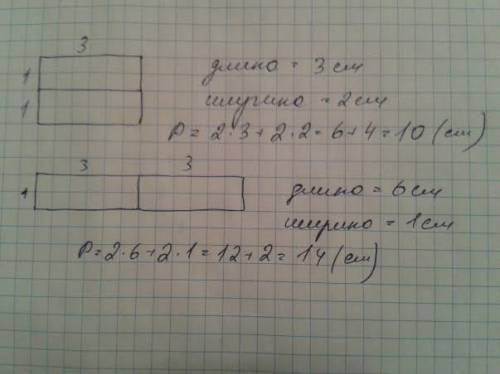 3
1
1
длина = 3 см
ширина = 2 см
P = 2·3 + 2·2 = 6 + 4 = 10 (см)
3 3
1
длина = 6 см
ширина = 1 см
P = 2·6 + 2·1 = 12 + 2 = 14 (см)